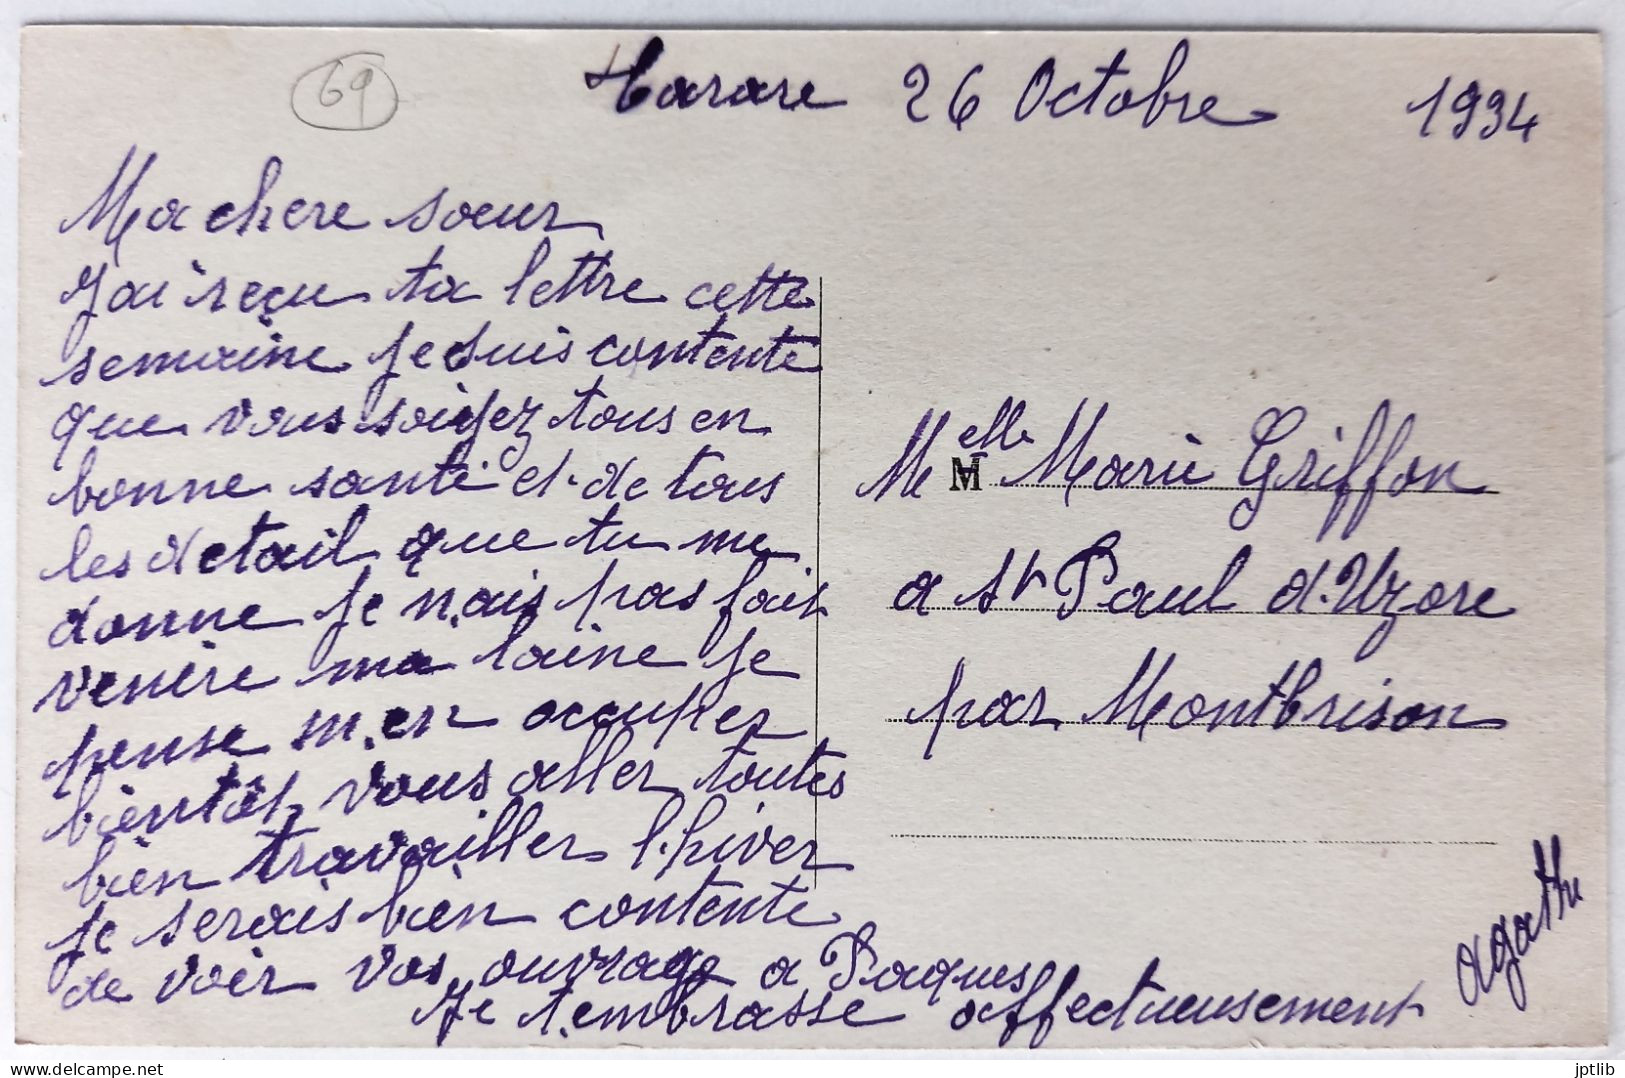 69
Tarare 26 Octobre 1934
Ma chere soeur
J'ai reçu ta lettre cette
semaine je suis contente
que vous soiyez tous en
bonne santé et de tous
les detail que tu me
donne je n,ais pas fait
venire ma laine je
pense m,en occuper
bientôt, vous aller toutes
bien travailler l'hiver
je serais bien contente
de voir vos ouvrage a Paques
Je t,embrasse affectueusement
agathe
Melle M Marie Griffon
a St Paul d'Uzore
par Montbrison
jptlib